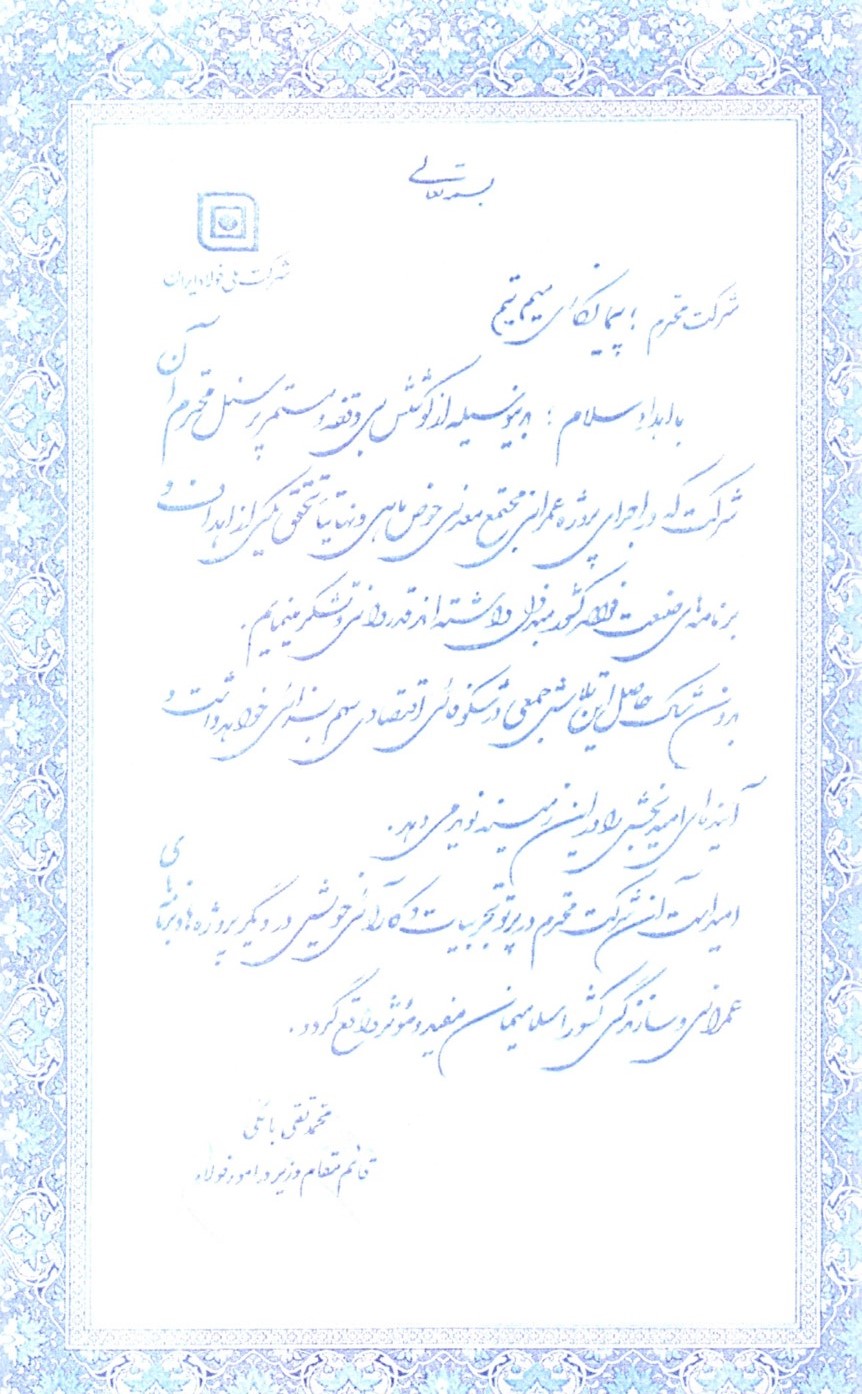 بسمه تعالی
شرکت ملی فولاد ایران
شرکت محترم ؛ پیمانکاری
با اهداء سلام ؛ بدینوسیله از کوشش بی وقفه و مستمر پرسنل محترم آن
شرکت که در اجرای پروژه عمرانی مجتمع معدنی حوض ماهی و نهایتاً تحقق یکی از اهداف و
برنامه‌های صنعت فولاد کشور مبذول داشته‌اند قدردانی و تشکر مینمایم.
بدون شک حاصل این تلاش جمعی در شکوفائی اقتصادی سهم بسزائی خواهد داشت و
آینده‌ای امیدبخش را در این زمینه نوید می دهد.
امید است آن شرکت محترم در پرتو تجربیات و کارآئی خویش در دیگر پروژه‌ها و برنامه‌های
عمرانی و سازندگی کشور اسلامیمان مفید و مؤثر واقع گردد.
محمد تقی بانکی
قائم مقام وزیر در امور فولاد